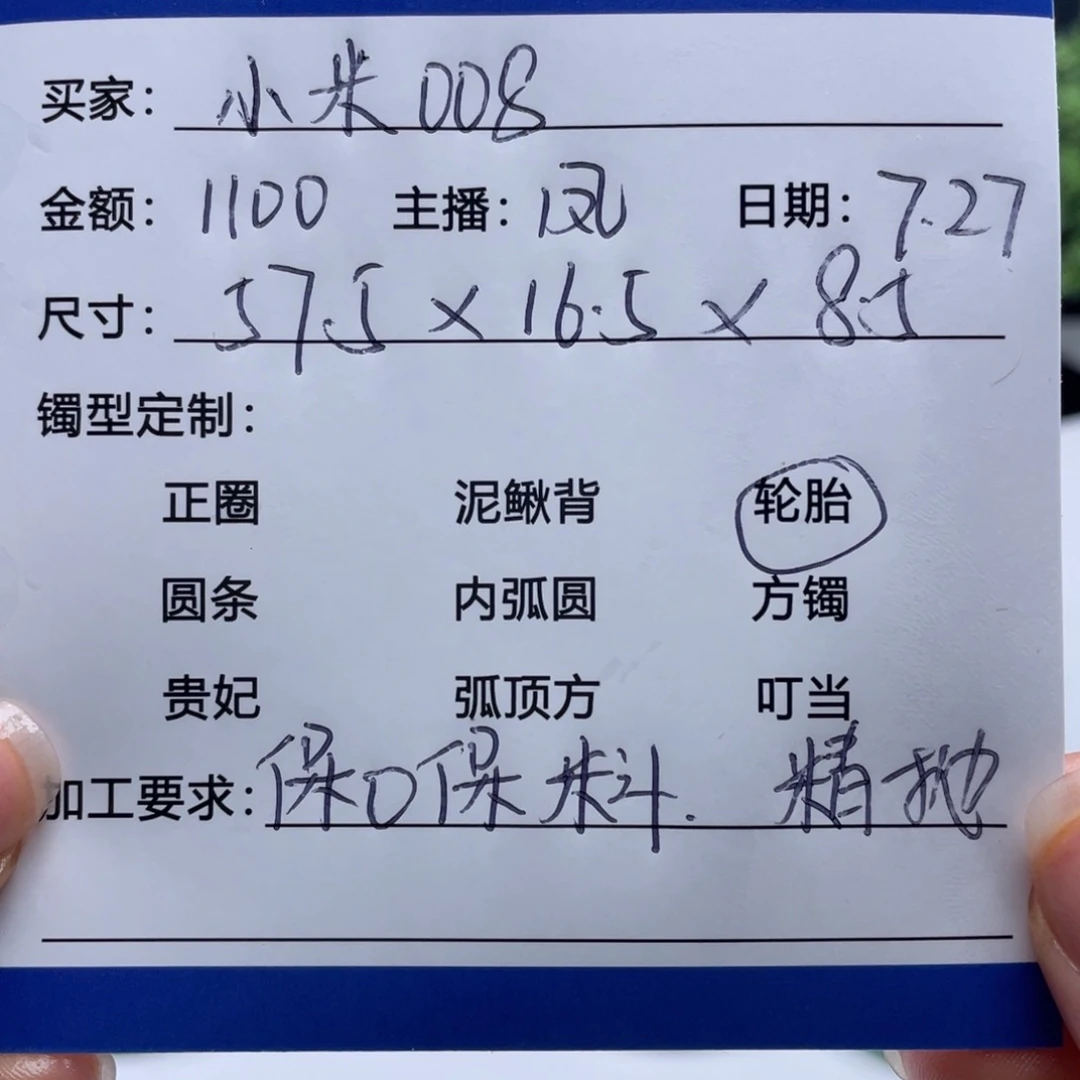 买家：小米008
金额：1100 主播：凤 日期：7.27
尺寸：57.5×16.5×8.5
镯型定制：
正圈 泥鳅背 轮胎
圆条 内弧圆 方镯
贵妃 弧顶方 叮当
加工要求：保口保料. 精抛